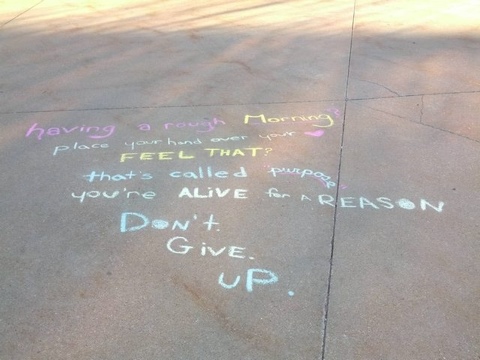 having a rough Morning?
place your hand over your ♥
FEEL THAT?
that's called "purpose"
you're ALiVE for A REASON
Don't.
GivE.
uP.